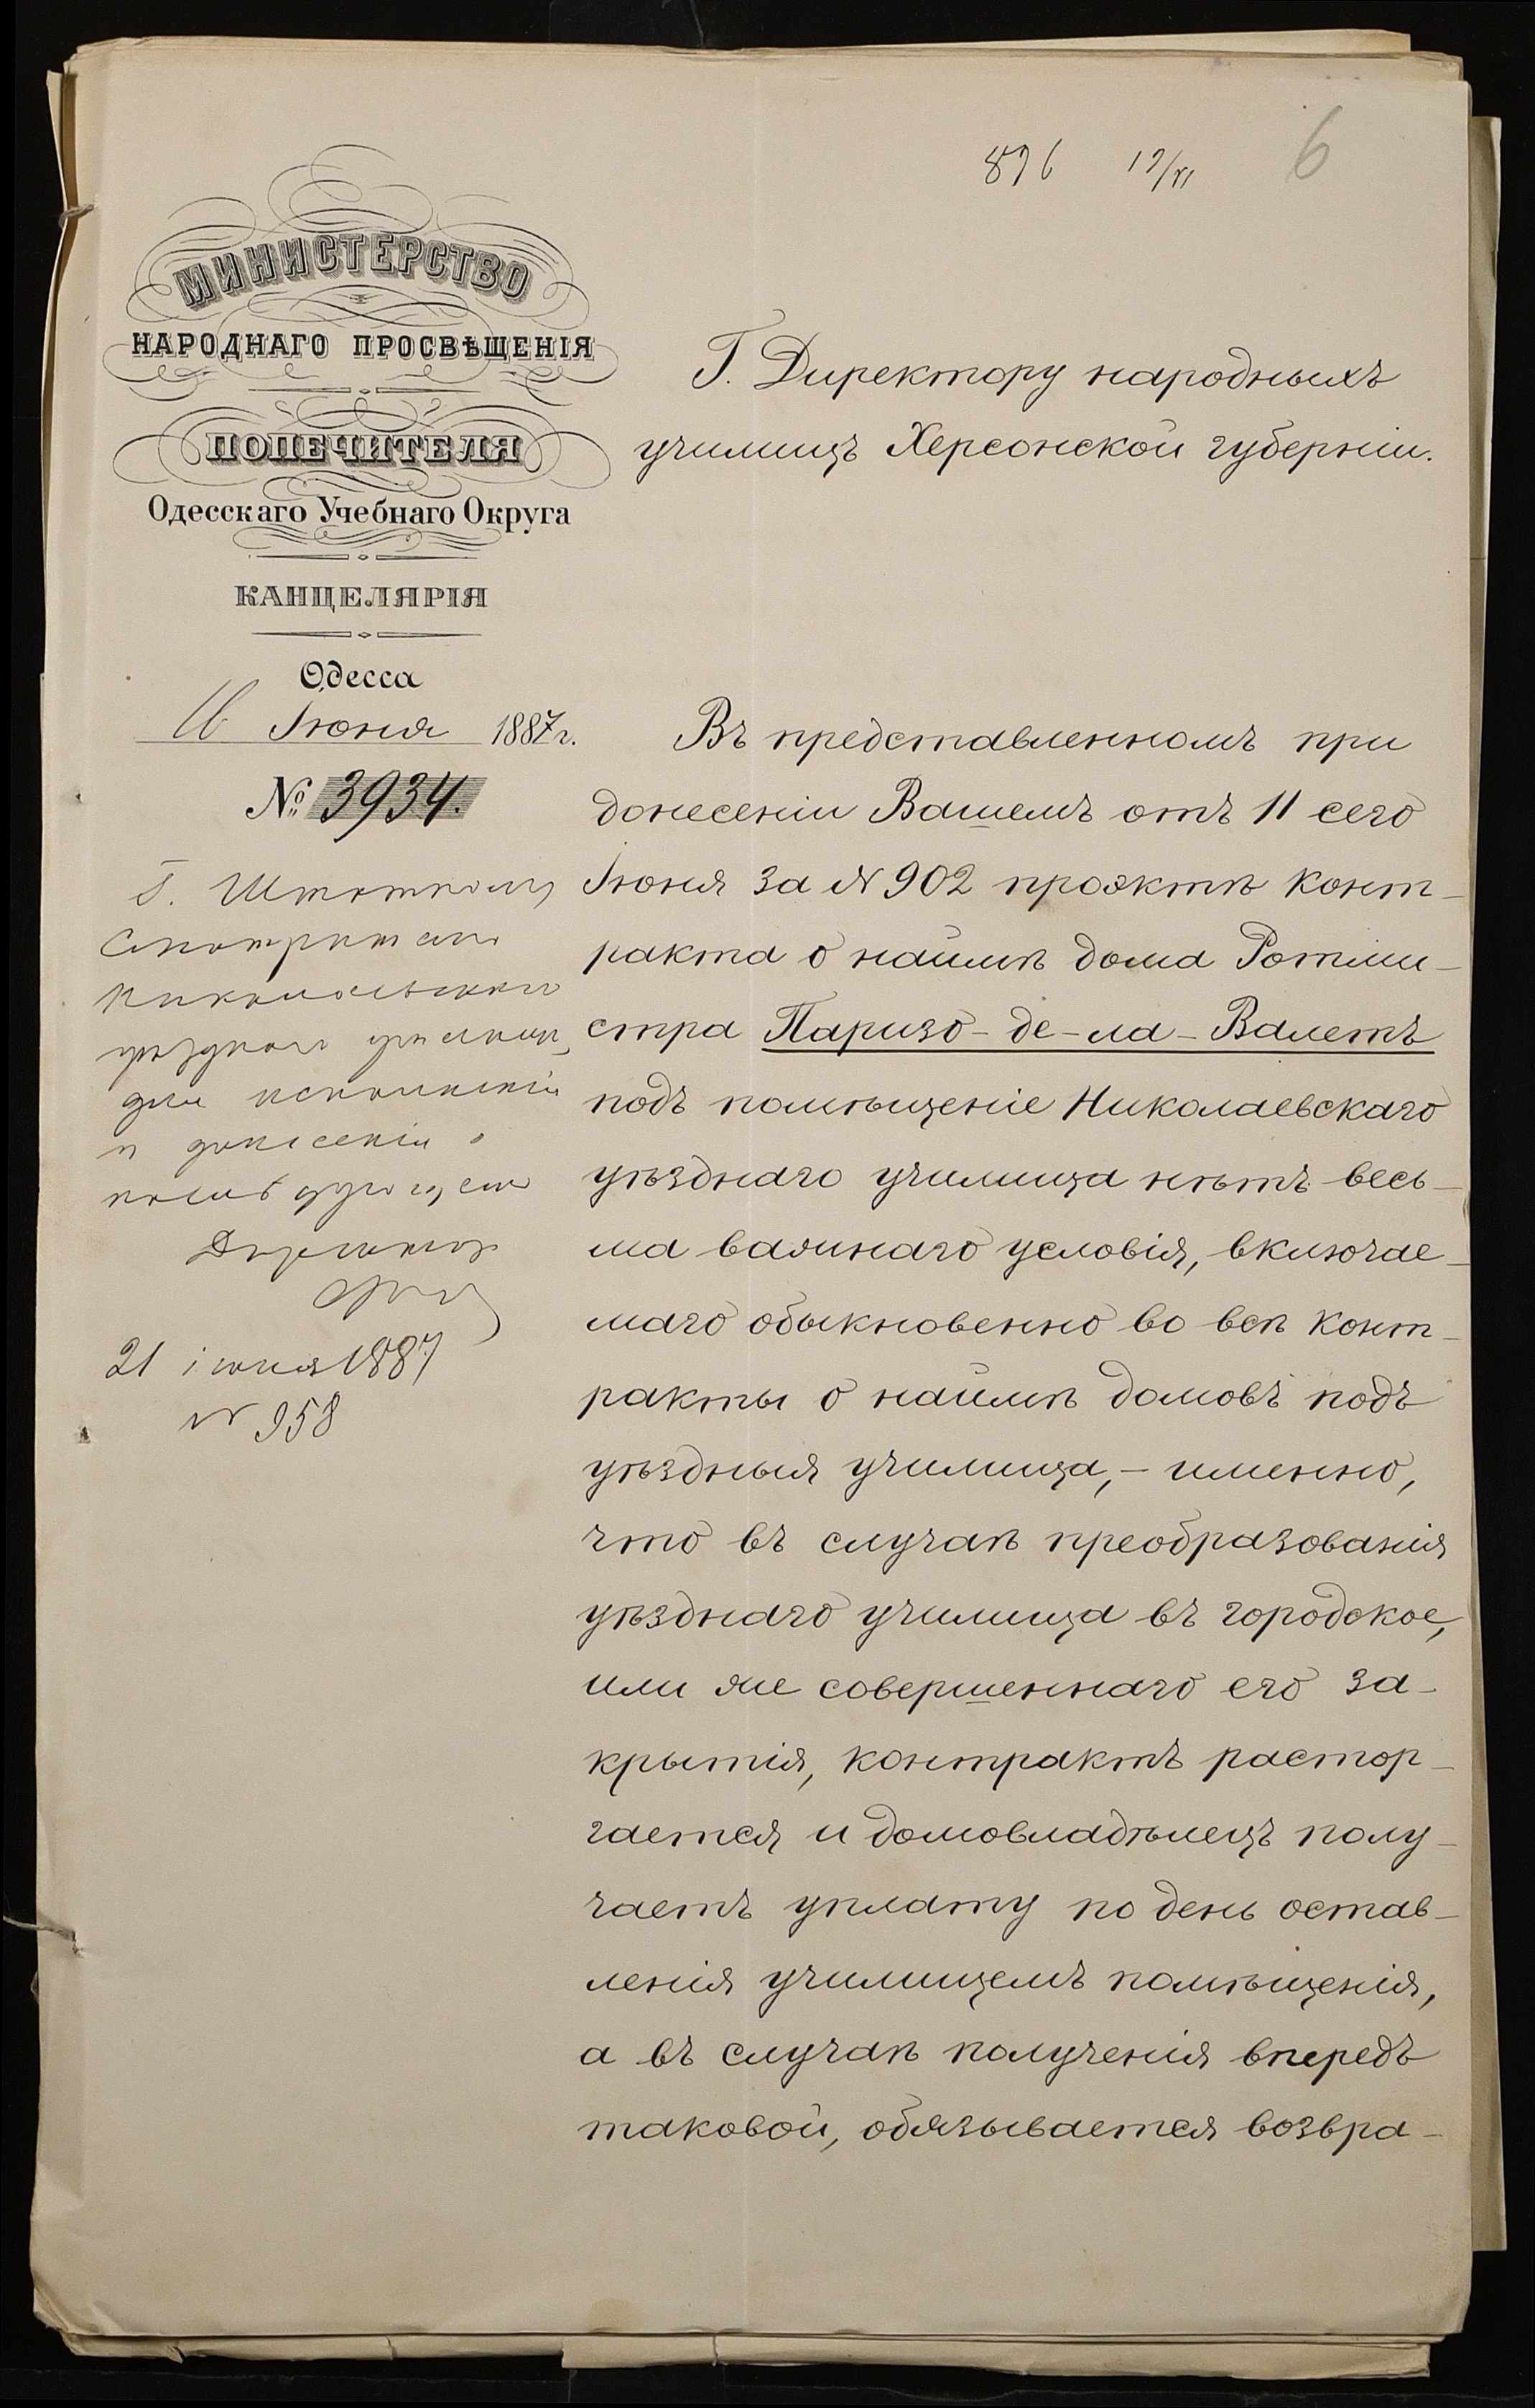 896 19/VI 6
МИНИСТЕРСТВО
НАРОДНАГО ПРОСВѢЩЕНІЯ
ПОПЕЧИТЕЛЯ
Одесскаго Учебнаго Округа
КАНЦЕЛЯРІЯ
Одесса
16 Іюня 1887 г.
№ 3934.
Г. Штатному
Смотрителю
Николаевскаго
уѣзднаго училища,
для исполненія
и донесенія о
послѣдующемъ
Директоръ
21 іюня 1887
№ 958
Г. Директору народныхъ
училищъ Херсонской губерніи.
Въ представленномъ при
донесеніи Вашемъ отъ 11 сего
Іюня за № 902 проэктѣ конт-
ракта о наймѣ дома Ротми-
стра Паризо-де-ла-Валетъ
подъ помѣщеніе Николаевскаго
уѣзднаго училища нѣтъ весь-
ма важнаго условія, включае-
маго обыкновенно во всѣ конт-
ракты о наймѣ домовъ подъ
уѣздныя училища,- именно,
что въ случаѣ преобразованія
уѣзднаго училища въ городское,
или же совершеннаго его за-
крытія, контрактъ растор-
гается и домовладѣлецъ полу-
чаетъ уплату по день остав-
ленія училищемъ помѣщенія,
а въ случаѣ полученія впередъ
таковой, обязывается возвра-